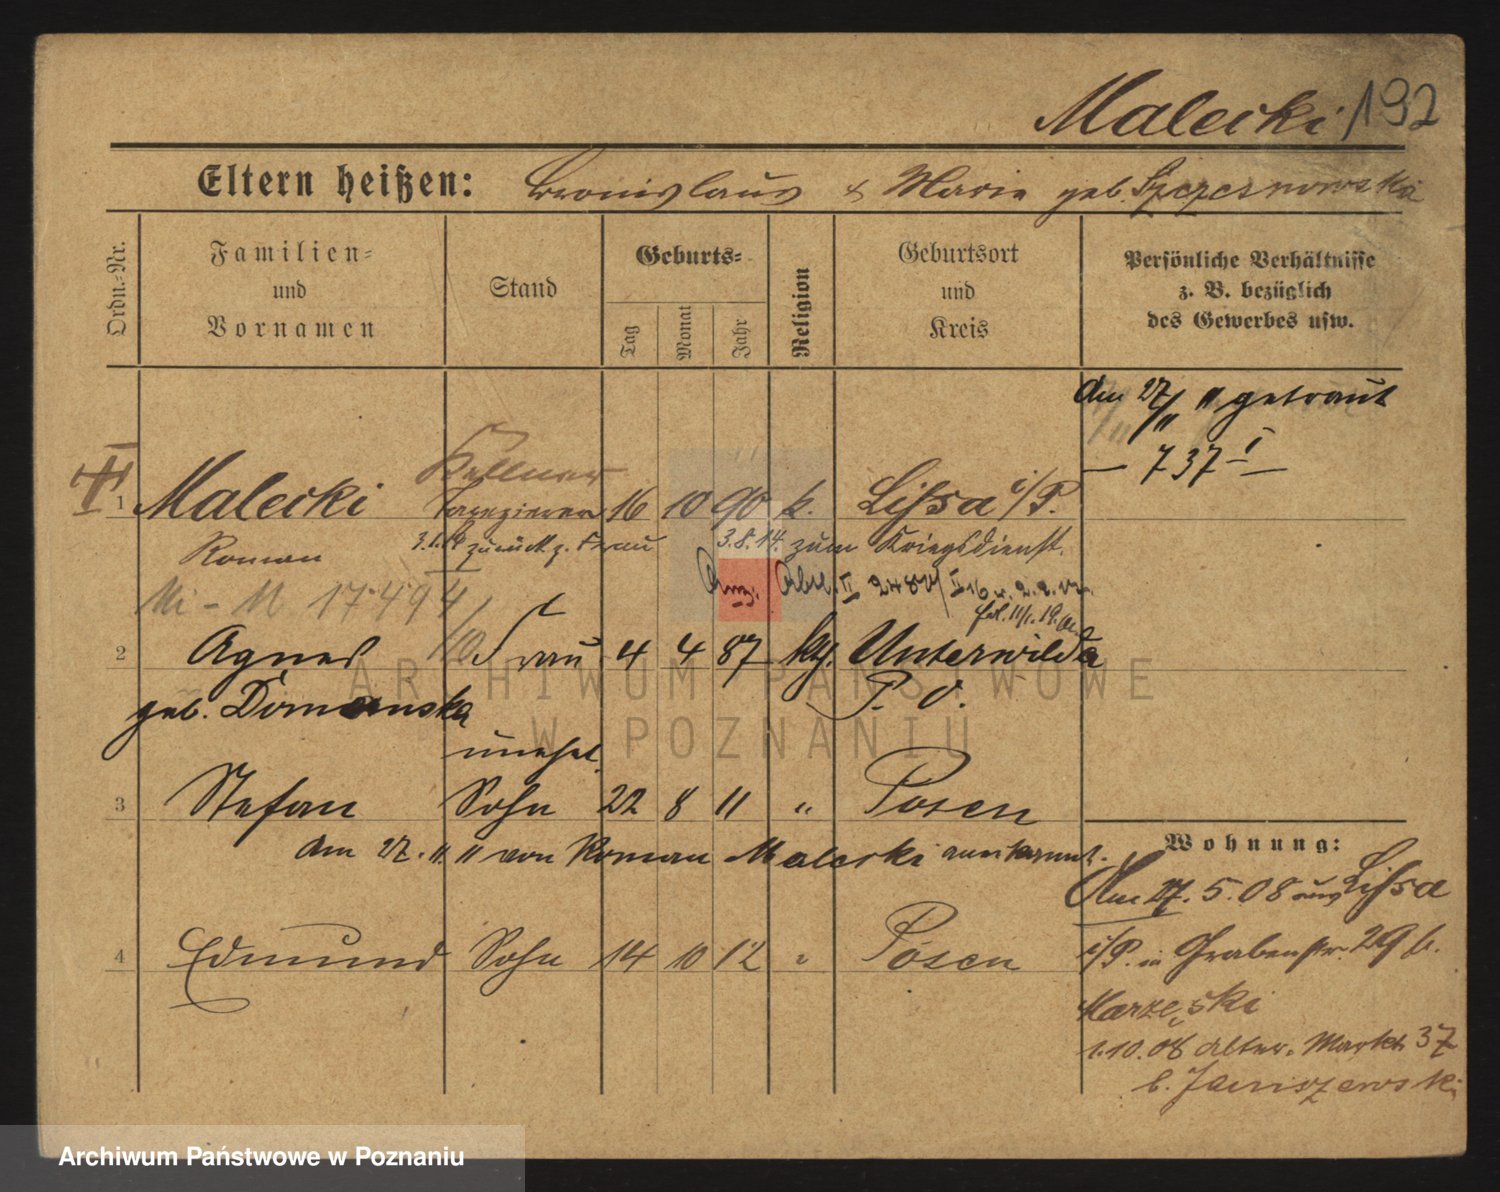 Malecki 192
Eltern heißen: Bronislaus & Marie geb. Szczesnowska
Ordn.-Nr.
Familien- und Vornamen
Stand
Geburts-
Tag
Monat
Jahr
Religion
Geburtsort und Kreis
Persönliche Verhältnisse
z. B. bezüglich
des Gewerbes usw.
Am 27/11 11 getraut
— 737 I —
Kellner
1 Malecki Tapezierer 16 10 90 k. Lissa i/P.
Roman 3.1.19 zurück z. Frau 3.8.14. zum Kriegsdienst.
17494
2 Agnes Frau 4 4 87 kth. Unterwilda
geb. Domanska P. O.
unehel.
3 Stefan Sohn 22 8 11 " Posen
Am 27. 11. 11 von Roman Malecki anerkannt.
4 Edmund Sohn 14 10 12 " Posen
Wohnung:
Am 17. 5. 08 aus Lissa
i/P. in Grabenstr. 29 b.
1.10.08 Alter Markt 37
b. Janiszewski
ARCHIWUM PAŃSTWOWE
W POZNANIU
Archiwum Państwowe w Poznaniu